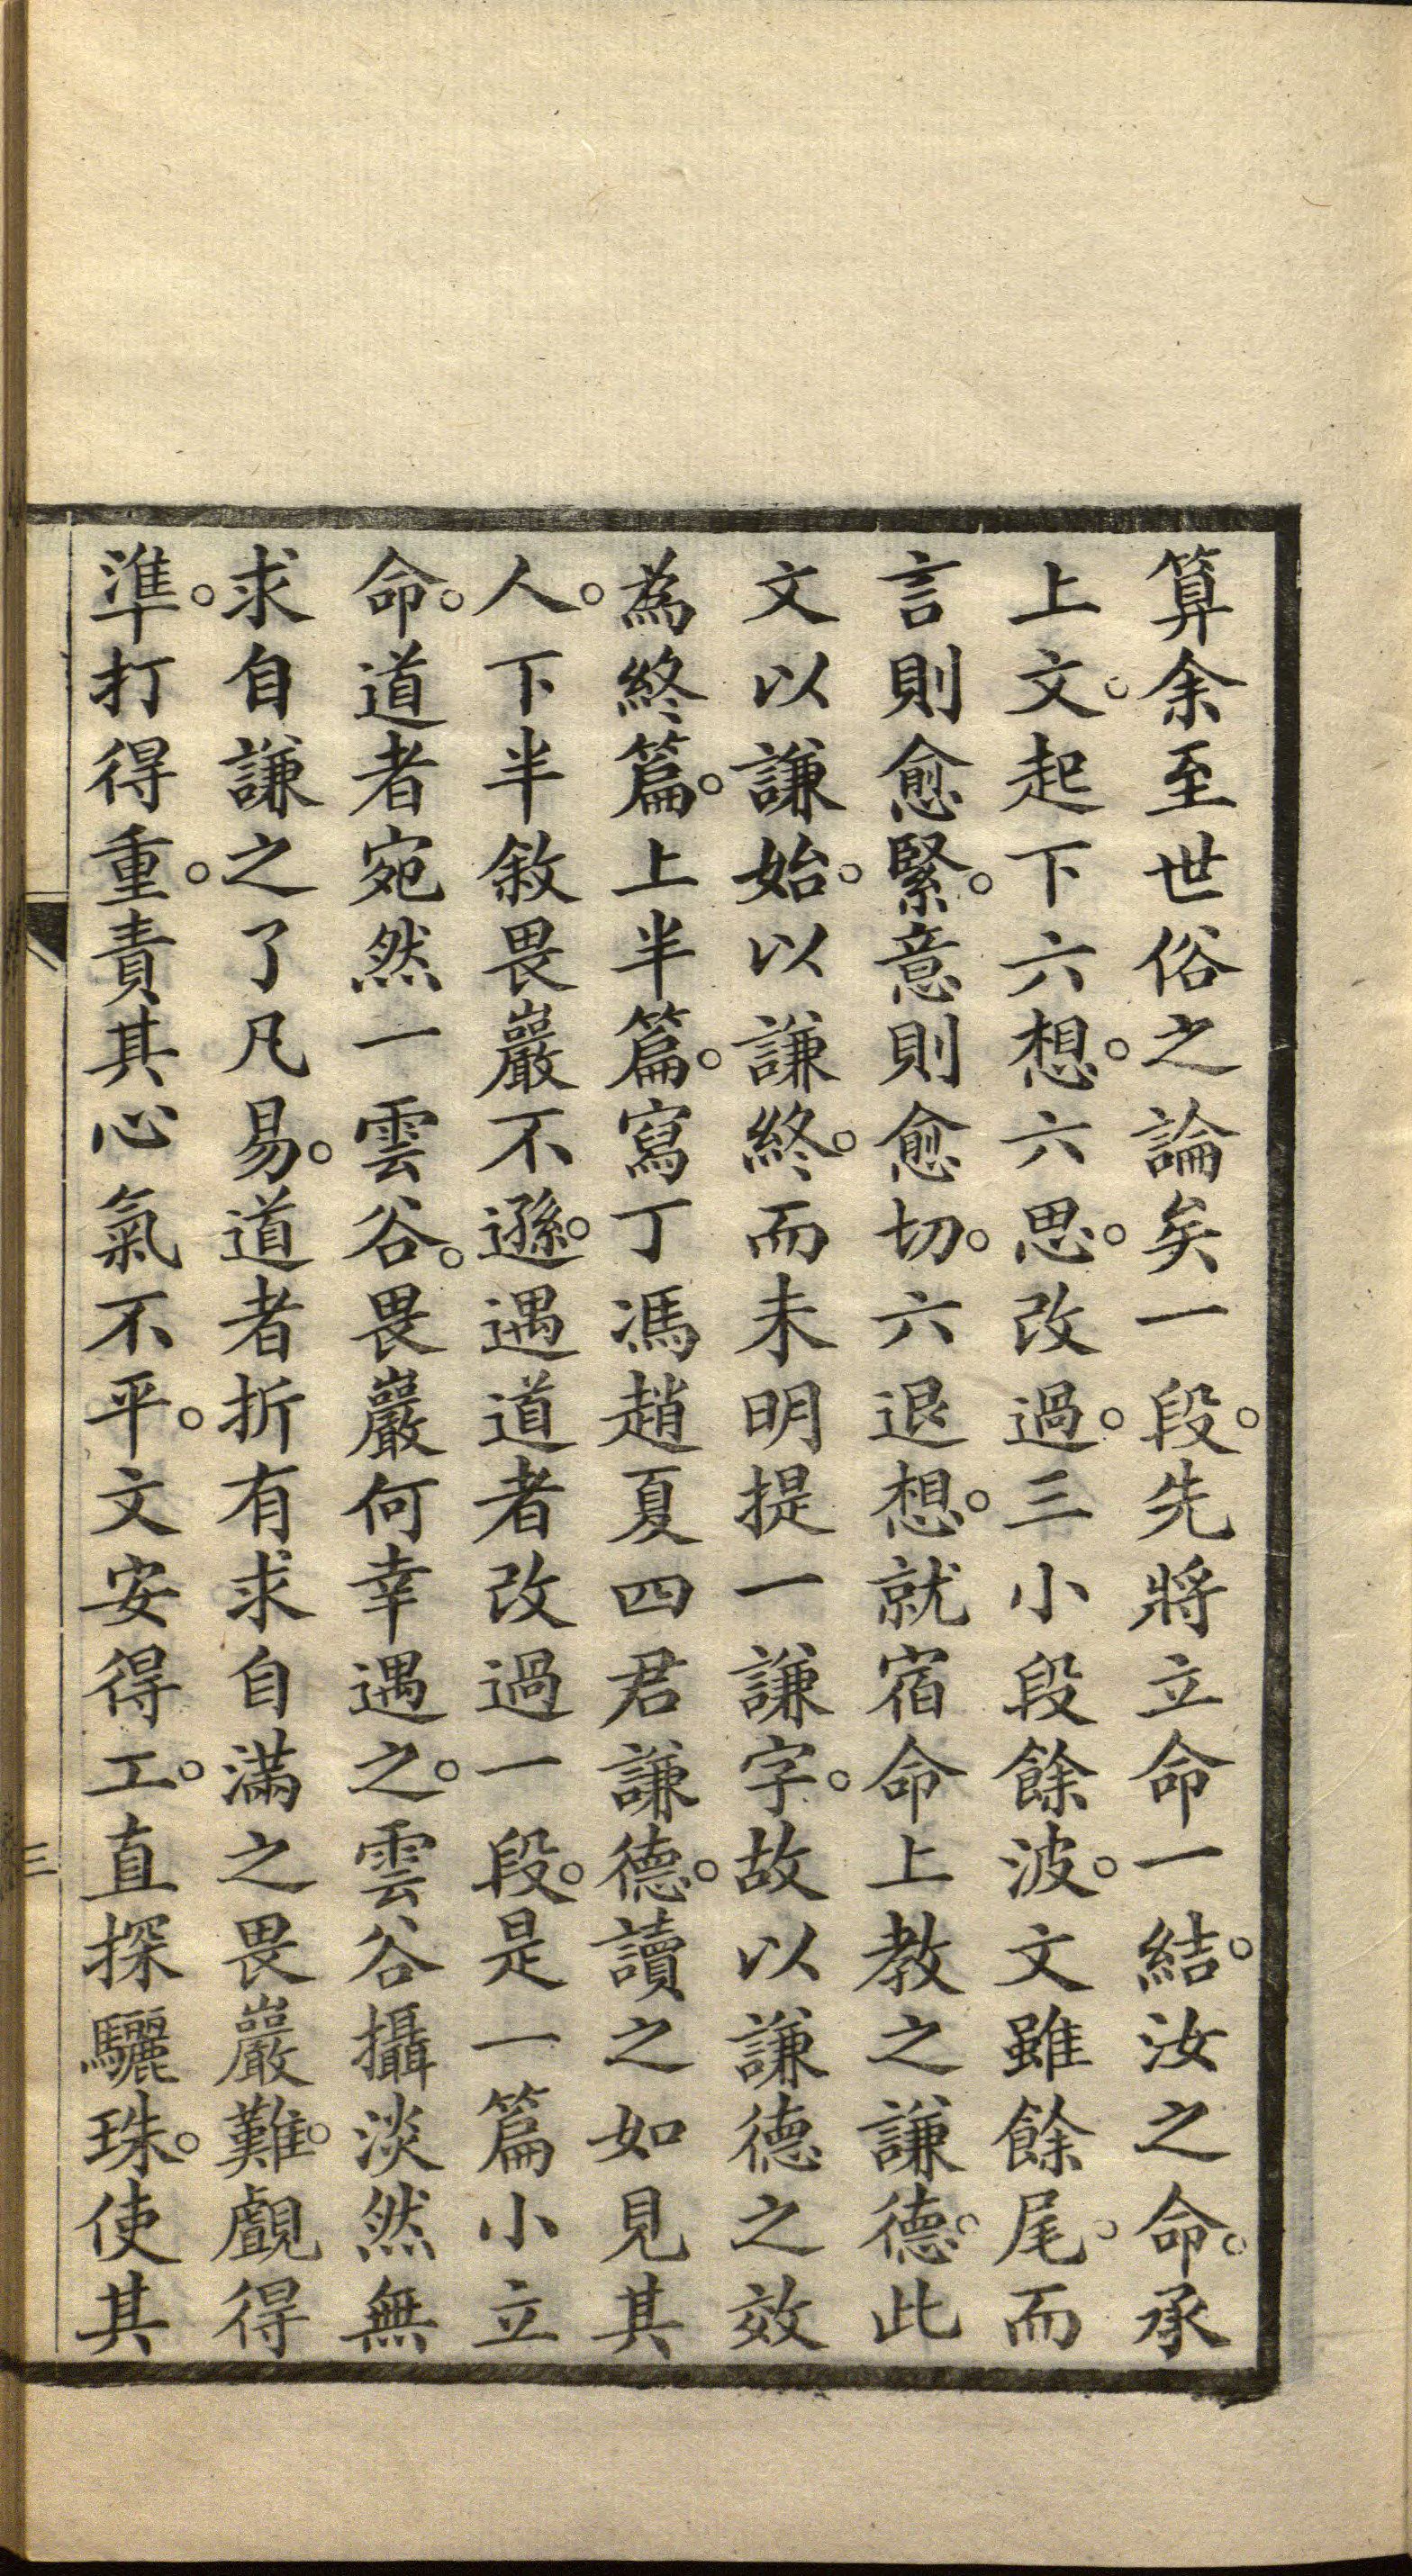 算余至世俗之論矣一段。先將立命一結。汝之命。承
上文。起下六想。六思。改過。三小段餘波。文雖餘尾。而
言則愈緊。意則愈切。六退想。就宿命上教之謙德。此
文以謙始。以謙終。而未明提一謙字。故以謙德之效
為終篇。上半篇。寫丁馮趙夏四君謙德。讀之如見其
人。下半敘畏巖不遜。遇道者改過一段。是一篇小立
命。道者宛然一雲谷。畏巖何幸遇之。雲谷攝淡然無
求自謙之了凡易。道者折有求自滿之畏巖難。覷得
準。打得重。責其心氣不平。文安得工。直探驪珠。使其
三